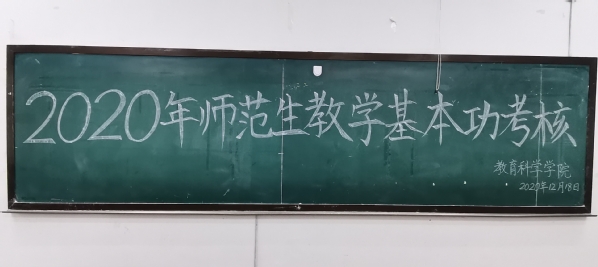 2020年师范生教学基本功考核
教育科学学院
2020年12月18日